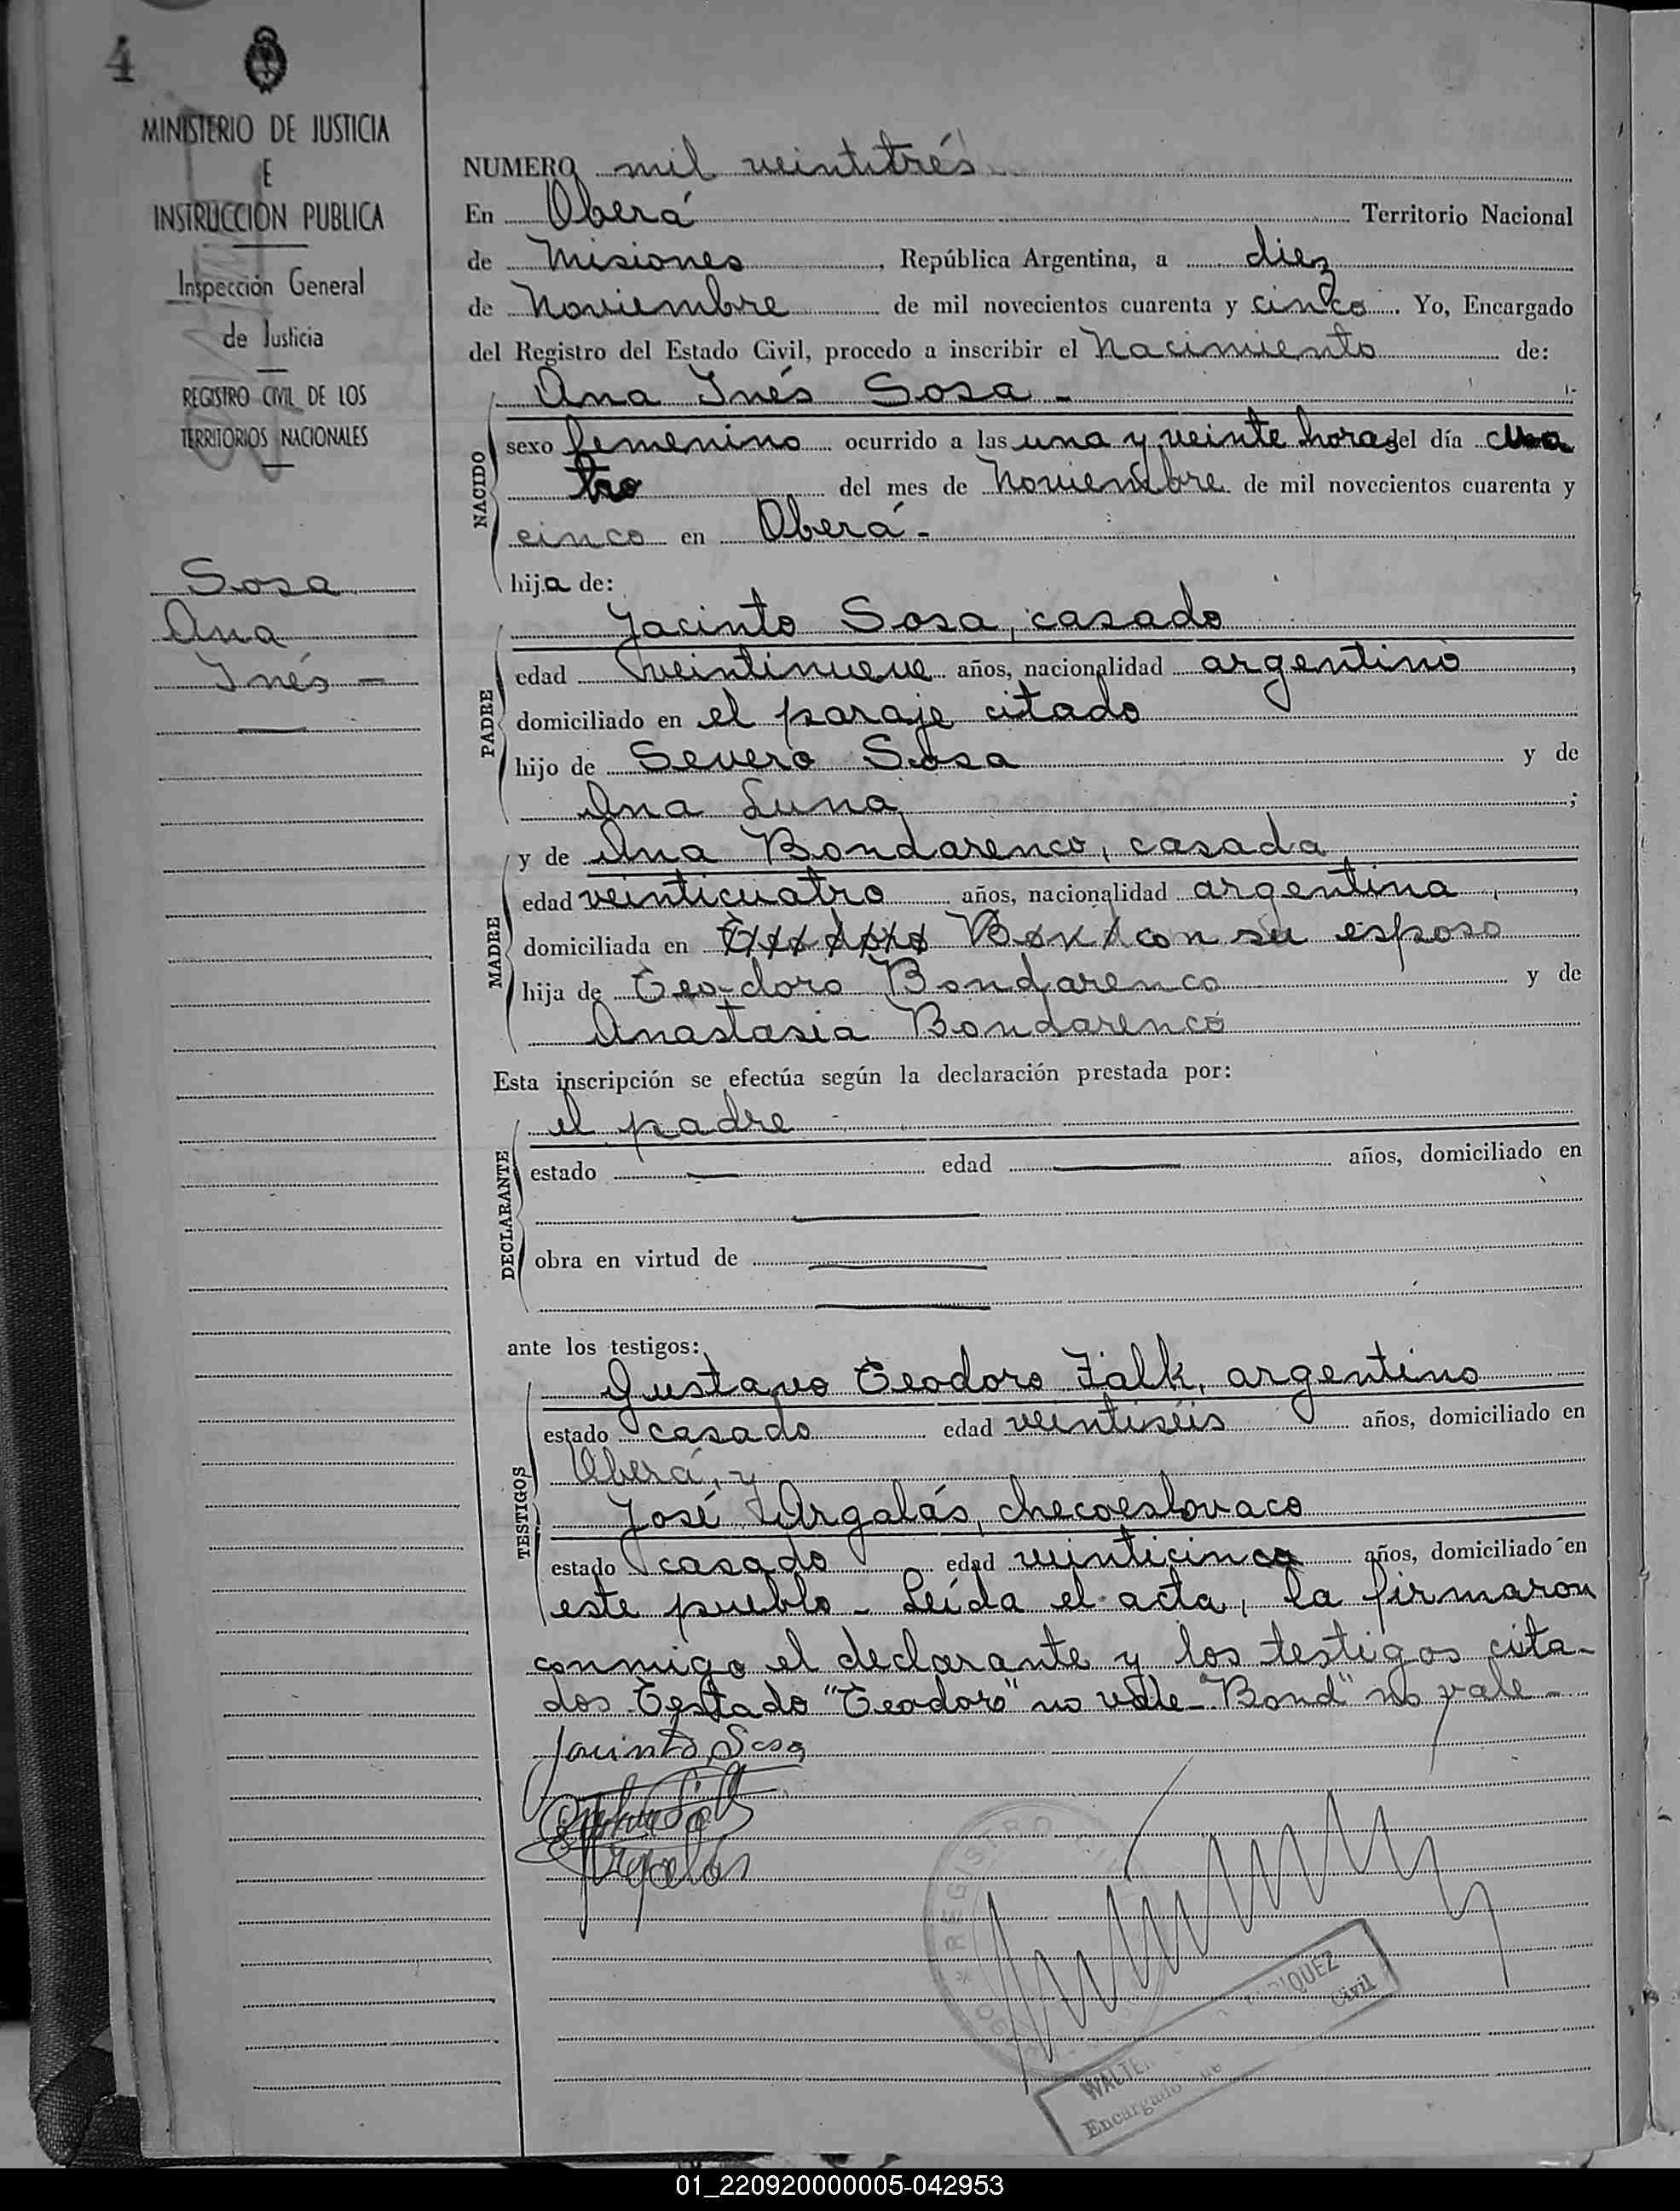 4
MINISTERIO DE JUSTICIA
E
INSTRUCCION PUBLICA
Inspección General
de Justicia
REGISTRO CIVIL DE LOS
TERRITORIOS NACIONALES
Sosa
Ana
Inés -
NUMERO mil veintitrés
En Oberá Territorio Nacional
de Misiones, República Argentina, a diez
de Noviembre de mil novecientos cuarenta y cinco. Yo, Encargado
del Registro del Estado Civil, procedo a inscribir el Nacimiento de:
NACIDO
Ana Inés Sosa -
sexo femenino ocurrido a las una y veinte horas del día cua
tro del mes de Noviembre de mil novecientos cuarenta y
cinco en Oberá -
hija de:
PADRE
Jacinto Sosa, casado
edad veintinueve años, nacionalidad argentino,
domiciliado en el paraje citado
hijo de Severo Sosa y de
Ana Luna;
MADRE
y de Ana Bondarenco, casada
edad veinticuatro años, nacionalidad argentina,
domiciliada en Teodoro Bon con su esposo
hija de Teodoro Bondarenco y de
Anastasia Bondarenco
Esta inscripción se efectúa según la declaración prestada por:
DECLARANTE
el padre
estado edad años, domiciliado en
obra en virtud de
ante los testigos:
TESTIGOS
Gustavo Teodoro Fälk, argentino
estado casado edad veintiséis años, domiciliado en
Oberá, y
José Argalás, checoeslovaco
estado casado edad veinticinco años, domiciliado en
este pueblo - Leída el acta, la firmaron
conmigo el declarante y los testigos cita-
dos. Testado "Teodoro" no vale - "Bond" no vale -
Jacinto Sosa
Argalás
REGISTRO
WALTE
RIQUEZ
Encargado
Civil
01_220920000005-042953